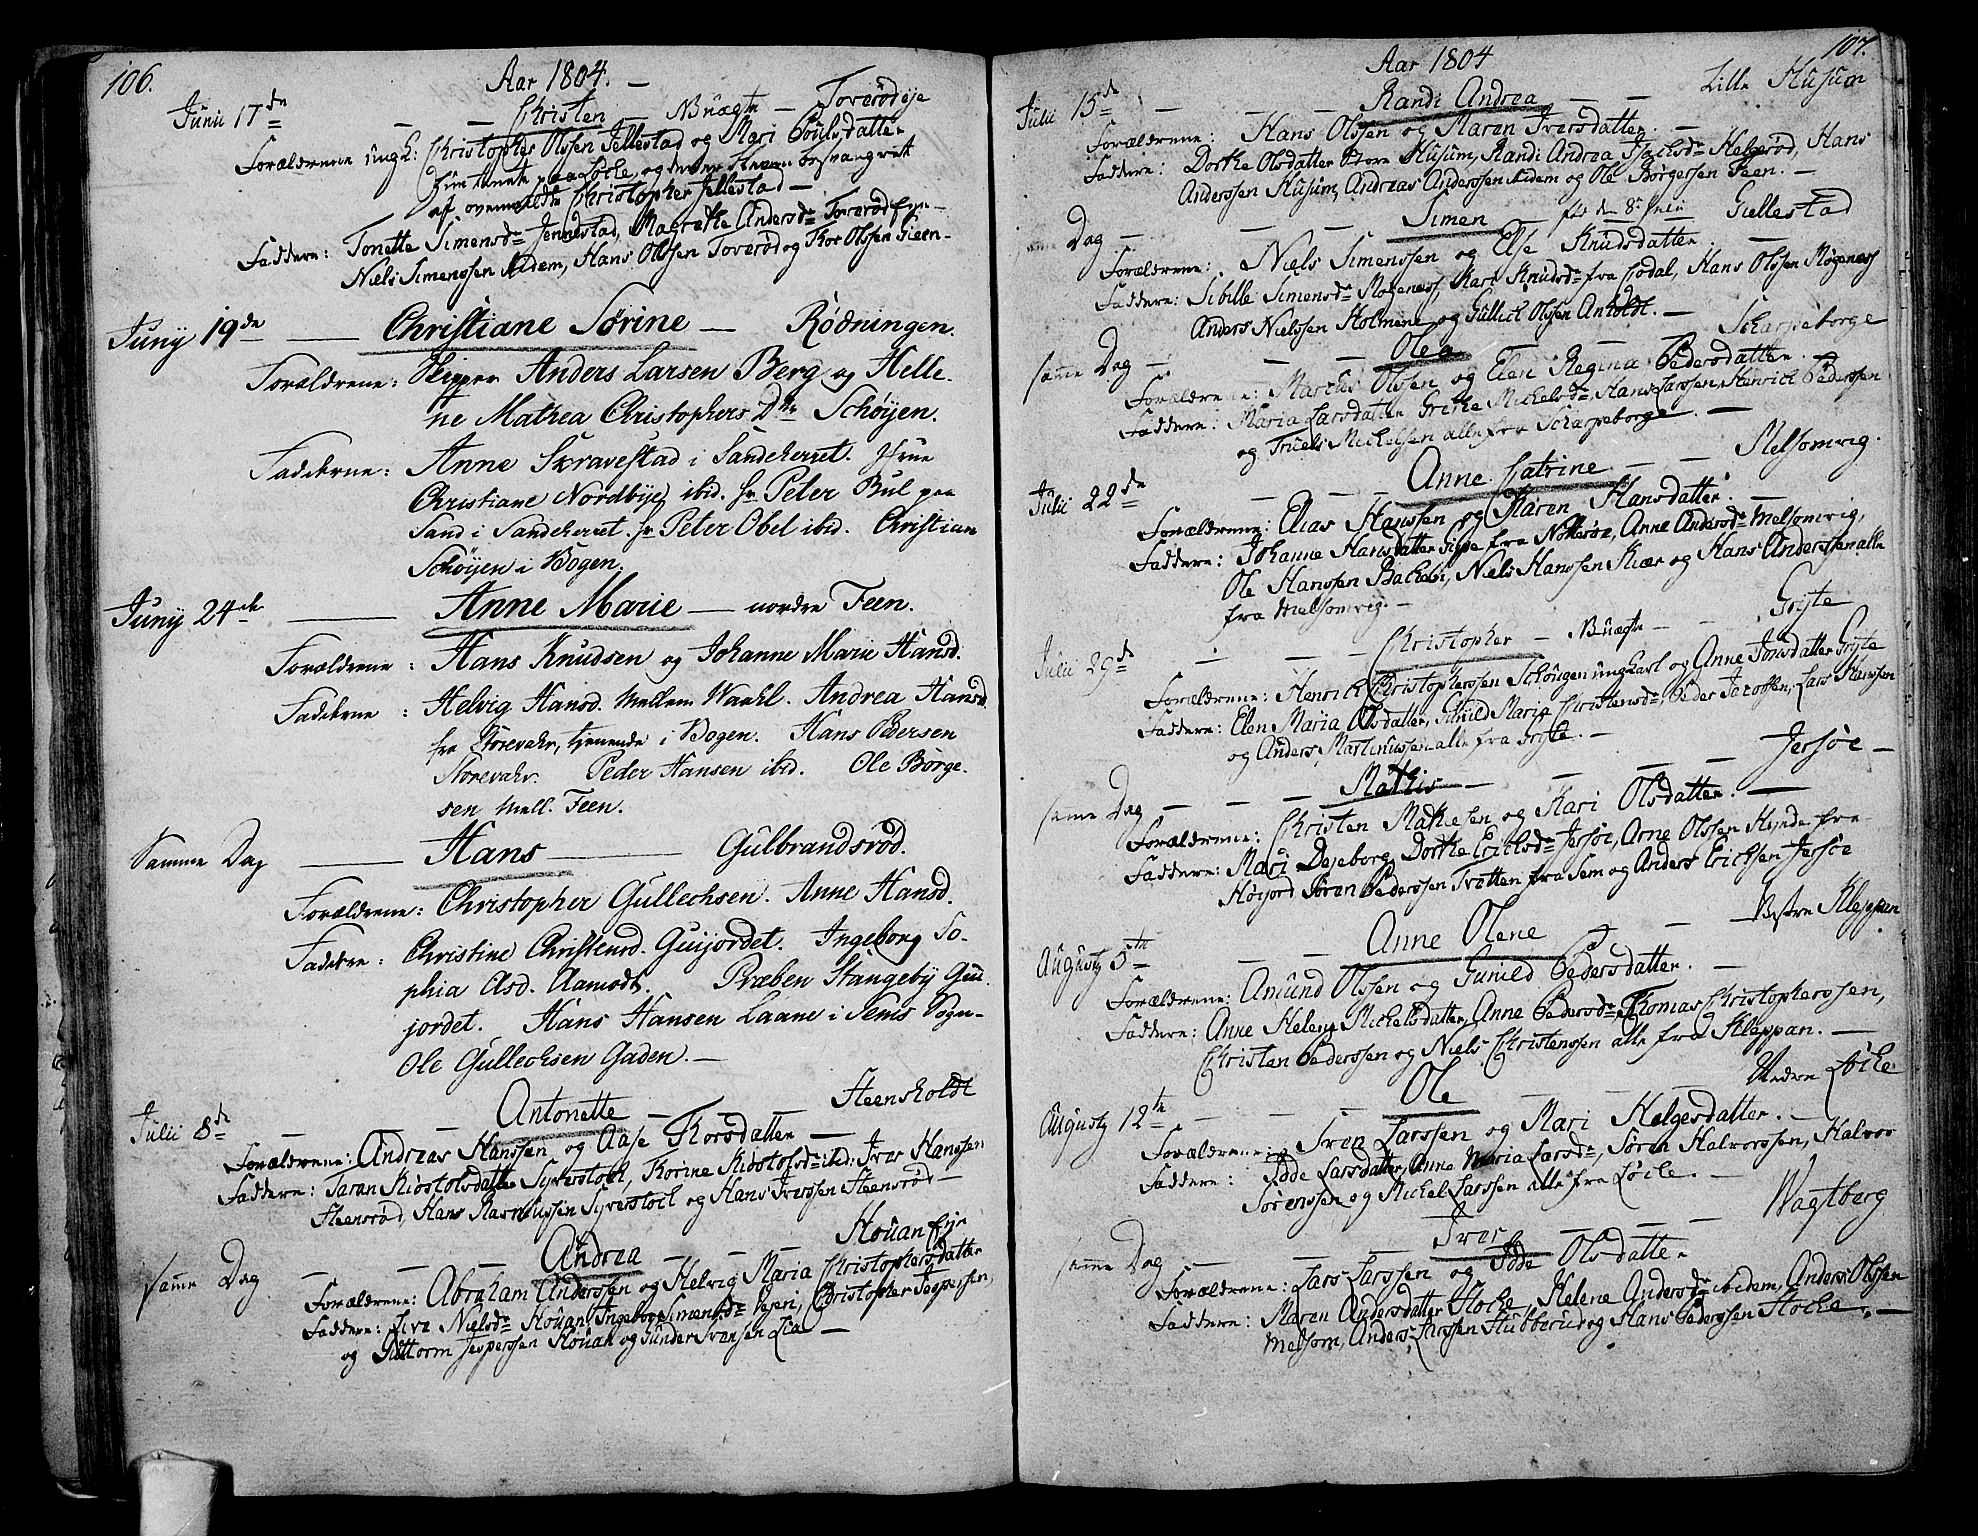 106.
Aar 1804. —
Junii 17de — — Christen — Buægte — Toverødeje
Forældrene ungk: Christopher Olssen Jellestad og Mari Poulsdatter
hun tiente paa Løcke, og der besvangret
af ovenmeldte Christopher Jellestad —
Faddere: Tonette Simensdr Jennestad, Magrethe Andersdr Toverødeje —
Niels Simenssen ibidem, Hans Olssen Toverød og Thor Olssen Gieen —
Juny 19de — Christiane Sørine — Rødningen.
Forældrene: Skipper Anders Larsen Berg og Helle-
ne Mathea Christophers Dtr Schøyen.
Faderne: Anne Skravestad i Sandeherret. Frue
Christiane Nordbye ibid. hr Peter Bul paa
Sand i Sandeherret. hr Peter Obel ibid. Christian
Schøyen i Bogen.
Juny 24de — Anne Marie — nordre Feen.
Forældrene: Hans Knudsen og Johanne Marie Hansd.
Faderne: Helvig Hansd. Mellem Waahl. Andrea Hansd
fra Storevahr, tjenende i Bogen. Hans Pedersen
Storevahr. Peder Hansen ibid. Ole Børge-
sen Mell. Feen.
Samme Dag — Hans — Gulbrandsrød.
Forældrene: Christopher Gullechsen. Anne Hansd.
Faderne: Christine Christensd. Guijordet. Ingeborg So-
phia Asd. Aamodt. Præben Stangeby Gui
jordet. Hans Hansen Laane i Sems Sogn-
Ole Gullechsen Gaden. —
Julii 8de — Antonette — — Steensholdt
Forældrene: Andreas Hanssen og Aase Thorsdatter —
Faddere: Taran Kiøstolsdatter Syverstock, Thorine Kiøstolsdr ibid: Iver Hanssen
Steensrød, Hans Rasmussen Syverstock og Hans Iverssen Steensrød —
samme Dag — — Andrea — — — Houan Eje
Forældrene: Abraham Anderssen og Helvig Maria Christophersdatter
Faddere: Siva Nielsdr Houan, Ingeborg Simensdr Vejeri, Christopher Jesperssen,
og Guttorm Jesperssen Houan og Gunder Ivarsen Lia —
107.
Aar 1804
Julii 15de — — Randi Andrea — — Lille Husum
Forældrene: Hans Olssen og Maren Iversdatter. —
Faddere: Dorthe Olsdatter Store Husum, Randi Andrea Isachsdr Helgerød, Hans
Anderssen Husum, Andreas Anderssen ibidem og Ole Børgerssen Feen. —
samme Dag — — — Simen — født den 8de Julii Giellestad
Forældrene: Niels Simenssen og Else Knudsdatter. —
Faddere: Sibille Simensdr Røgenæss, Kari Knudsdr fra Lodal, Hans Olssen Røgenæss
Anders Nielssen Holmene og Gullich Olssen Anholdt. —
samme Dag — — — Olea — — Scharpeborge
Forældrene: Marthes Olssen og Elen Regina Pedersdatter.
Faddere: Maria Larsdatter Grethe Michelsdr, Hans Larssen, Henrich Pederssen
og Truels Michelssen alle fra Scharpeborge. —
Julii 22de — — Anne Catrine — — Melsomvig.
Forældrene: Elias Hanssen og Karen Hansdatter. —
Faddere: Johanne Hansdatter Gipøe fra Nøtterøe, Anne Andersdr Melsomvig,
Ole Hanssen Bachebi, Niels Hanssen Skiær og Hans Anderssen alle
fra Melsomvig. —
Julii 29de — — Christopher — Buægte — — Gryte
Forældrene: Henrich Christopherssen Schøngen ungkarl og Anne Jonsdatter Gryte
Faddere: Elen Maria Olsdatter, Gunild Maria Christensdr, Peder Jacobssen, Lars Hanssen
og Anders Mortinussen alle fra Gryte. —
samme Dag — — — Mathis — — Jersøe —
Forældrene: Christen Mathiesen og Kari Olsdatter. —
Faddere: Mari Dejeborg, Dorthe Erichsdr Jersøe, Arne Olssen Hynde fra
Høyjord Søren Pederssen Tvætten fra Sem og Anders Erichsen Jersøe
Augusty 5te — — Anne Olene — — Vestre Kleppan
Forældrene: Amund Olssen og Gunild Pedersdatter. —
Faddere: Anne Helene Michelsdatter, Anne Pedersdr, Thomas Christopherssen,
Christen Pederssen og Niels Christenssen alle fra Kleppan. —
Augusty 12te — — Ole — — Nedre Løcke
Forældrene: Iven Larssen og Mari Helgesdatter. —
Faddere: Idde Larsdatter, Anne Maria Larsdr, Søren Halvorssen, Halvor
Sørenssen og Michel Larssen alle fra Løcke. —
samme Dag — — Iver — — — Wagtberg
Forældrene: Lars Larssen og Idde Olsdatter
Faddere: Maren Andersdatter Hocke, Helene Andersdr ibidem, Anders Olssen
Melsom, Anders Larssen Hubberud og Hans Pederssen Hocke. —